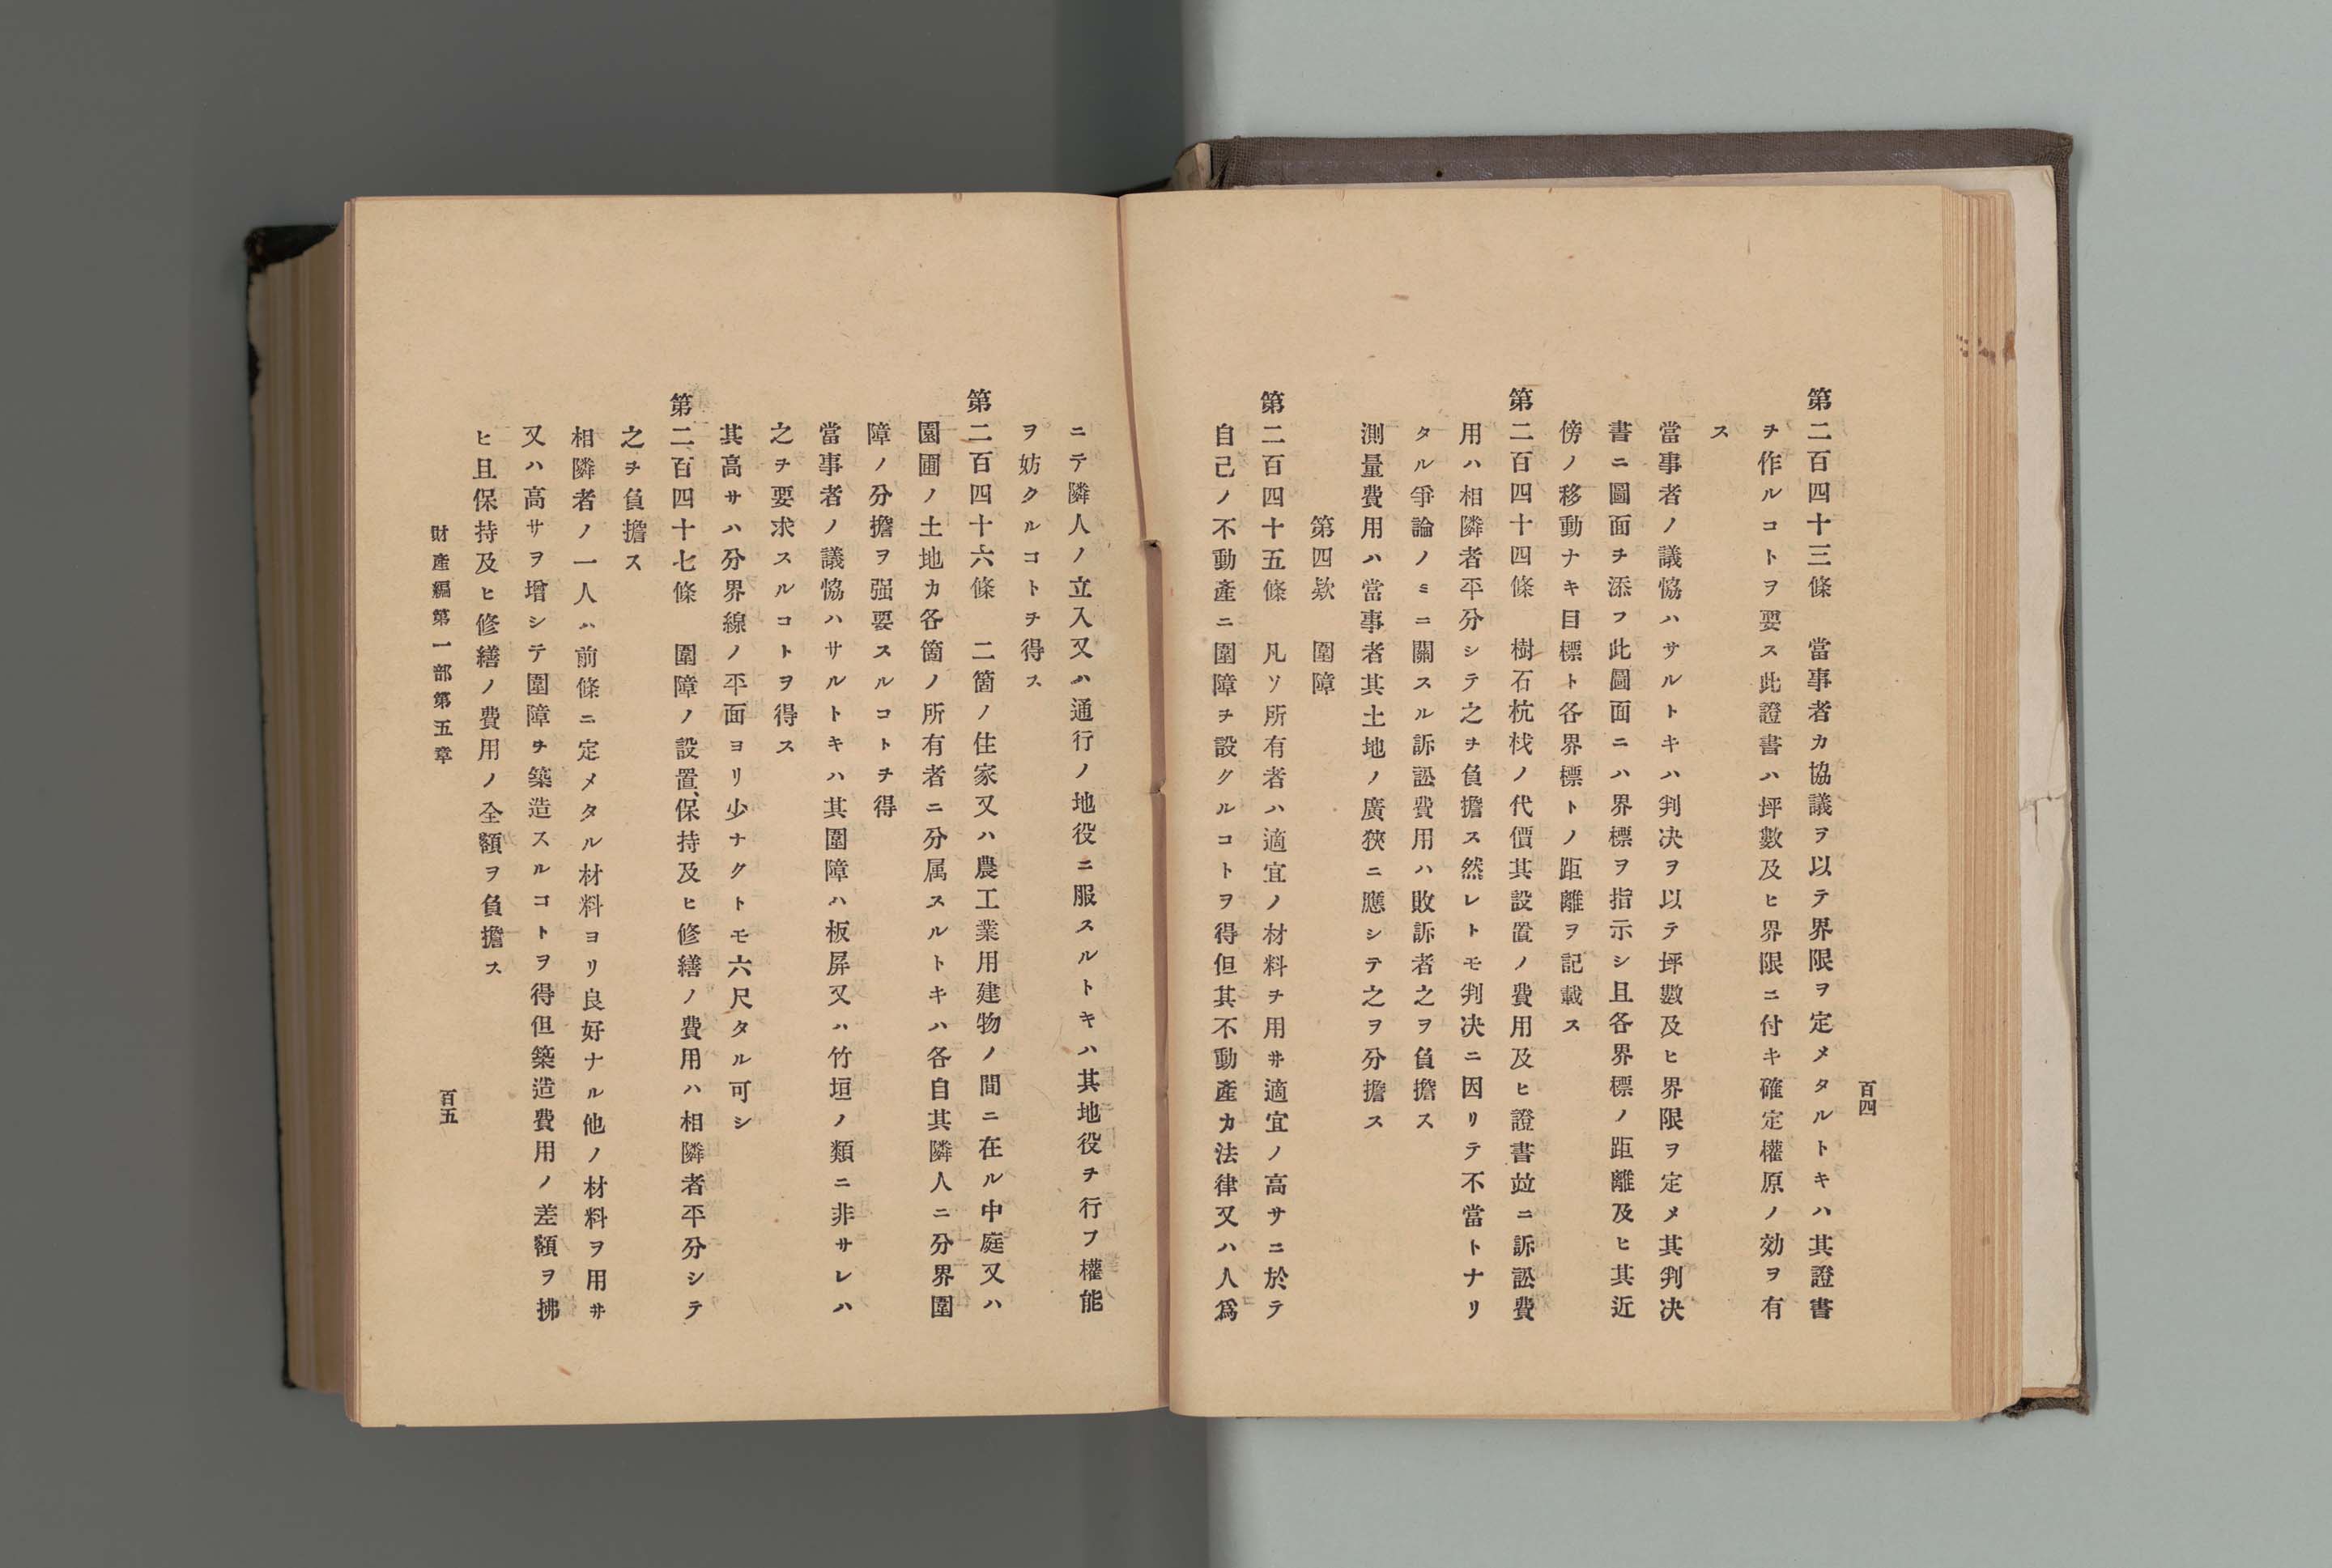 百四
第二百四十三條　當事者カ協議ヲ以テ界限ヲ定メタルトキハ其證書
ヲ作ルコトヲ要ス此證書ハ坪數及ヒ界限ニ付キ確定權原ノ効ヲ有
ス
當事者ノ議恊ハサルトキハ判决ヲ以テ坪數及ヒ界限ヲ定メ其判决
書ニ圖面ヲ添フ此圖面ニハ界標ヲ指示シ且各界標ノ距離及ヒ其近
傍ノ移動ナキ目標ト各界標トノ距離ヲ記載ス
第二百四十四條　樹石杭杙ノ代價其設置ノ費用及ヒ證書竝ニ訴訟費
用ハ相隣者平分シテ之ヲ負擔ス然レトモ判决ニ因リテ不當トナリ
タル爭論ノミニ關スル訴訟費用ハ敗訴者之ヲ負擔ス
測量費用ハ當事者其土地ノ廣狹ニ應シテ之ヲ分擔ス
第四欵　圍障
第二百四十五條　凡ソ所有者ハ適宜ノ材料ヲ用井適宜ノ高サニ於テ
自己ノ不動產ニ圍障ヲ設クルコトヲ得但其不動產カ法律又ハ人爲
ニテ隣人ノ立入又ハ通行ノ地役ニ服スルトキハ其地役ヲ行フ權能
ヲ妨クルコトヲ得ス
第二百四十六條　二箇ノ住家又ハ農工業用建物ノ間ニ在ル中庭又ハ
園圃ノ土地カ各箇ノ所有者ニ分属スルトキハ各自其隣人ニ分界圍
障ノ分擔ヲ强要スルコトヲ得
當事者ノ議恊ハサルトキハ其圍障ハ板屏又ハ竹垣ノ類ニ非サレハ
之ヲ要求スルコトヲ得ス
其高サハ分界線ノ平面ヨリ少ナクトモ六尺タル可シ
第二百四十七條　圍障ノ設置、保持及ヒ修繕ノ費用ハ相隣者平分シテ
之ヲ負擔ス
相隣者ノ一人ハ前條ニ定メタル材料ヨリ良好ナル他ノ材料ヲ用井
又ハ高サヲ增シテ圍障ヲ築造スルコトヲ得但築造費用ノ差額ヲ拂
ヒ且保持及ヒ修繕ノ費用ノ全額ヲ負擔ス
財產編第一部第五章
百五